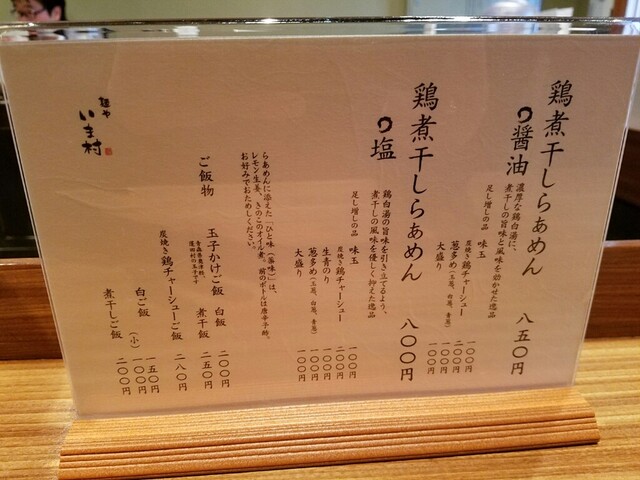 鶏煮干しらぁめん
醤油
八五〇円
濃厚な鶏白湯に、
煮干しの旨味と風味を効かせた逸品
足し増しの品
味玉 一〇〇円
炭焼き鶏チャーシュー 二〇〇円
葱多め(玉葱、白葱、青葱) 一〇〇円
大盛り 一〇〇円
鶏煮干しらぁめん
塩
八〇〇円
鶏白湯の旨味を引き立てるよう、
煮干しの風味を優しく抑えた逸品
足し増しの品
味玉 一〇〇円
炭焼き鶏チャーシュー 二〇〇円
生青のり 一〇〇円
葱多め(玉葱、白葱、青葱) 一〇〇円
大盛り 一〇〇円
らあめんに添えた「ひと味(薬味)」は、
レモン生姜、きのこのオイル煮、前のボトルは唐辛子酢。
お好みでおためしください。
ご飯物
玉子かけご飯 白飯 二〇〇円
煮干飯 二五〇円
炭焼き鶏チャーシューご飯 二八〇円
白ご飯 一五〇円
(小) 一〇〇円
煮干しご飯 二〇〇円
麺や
いま村